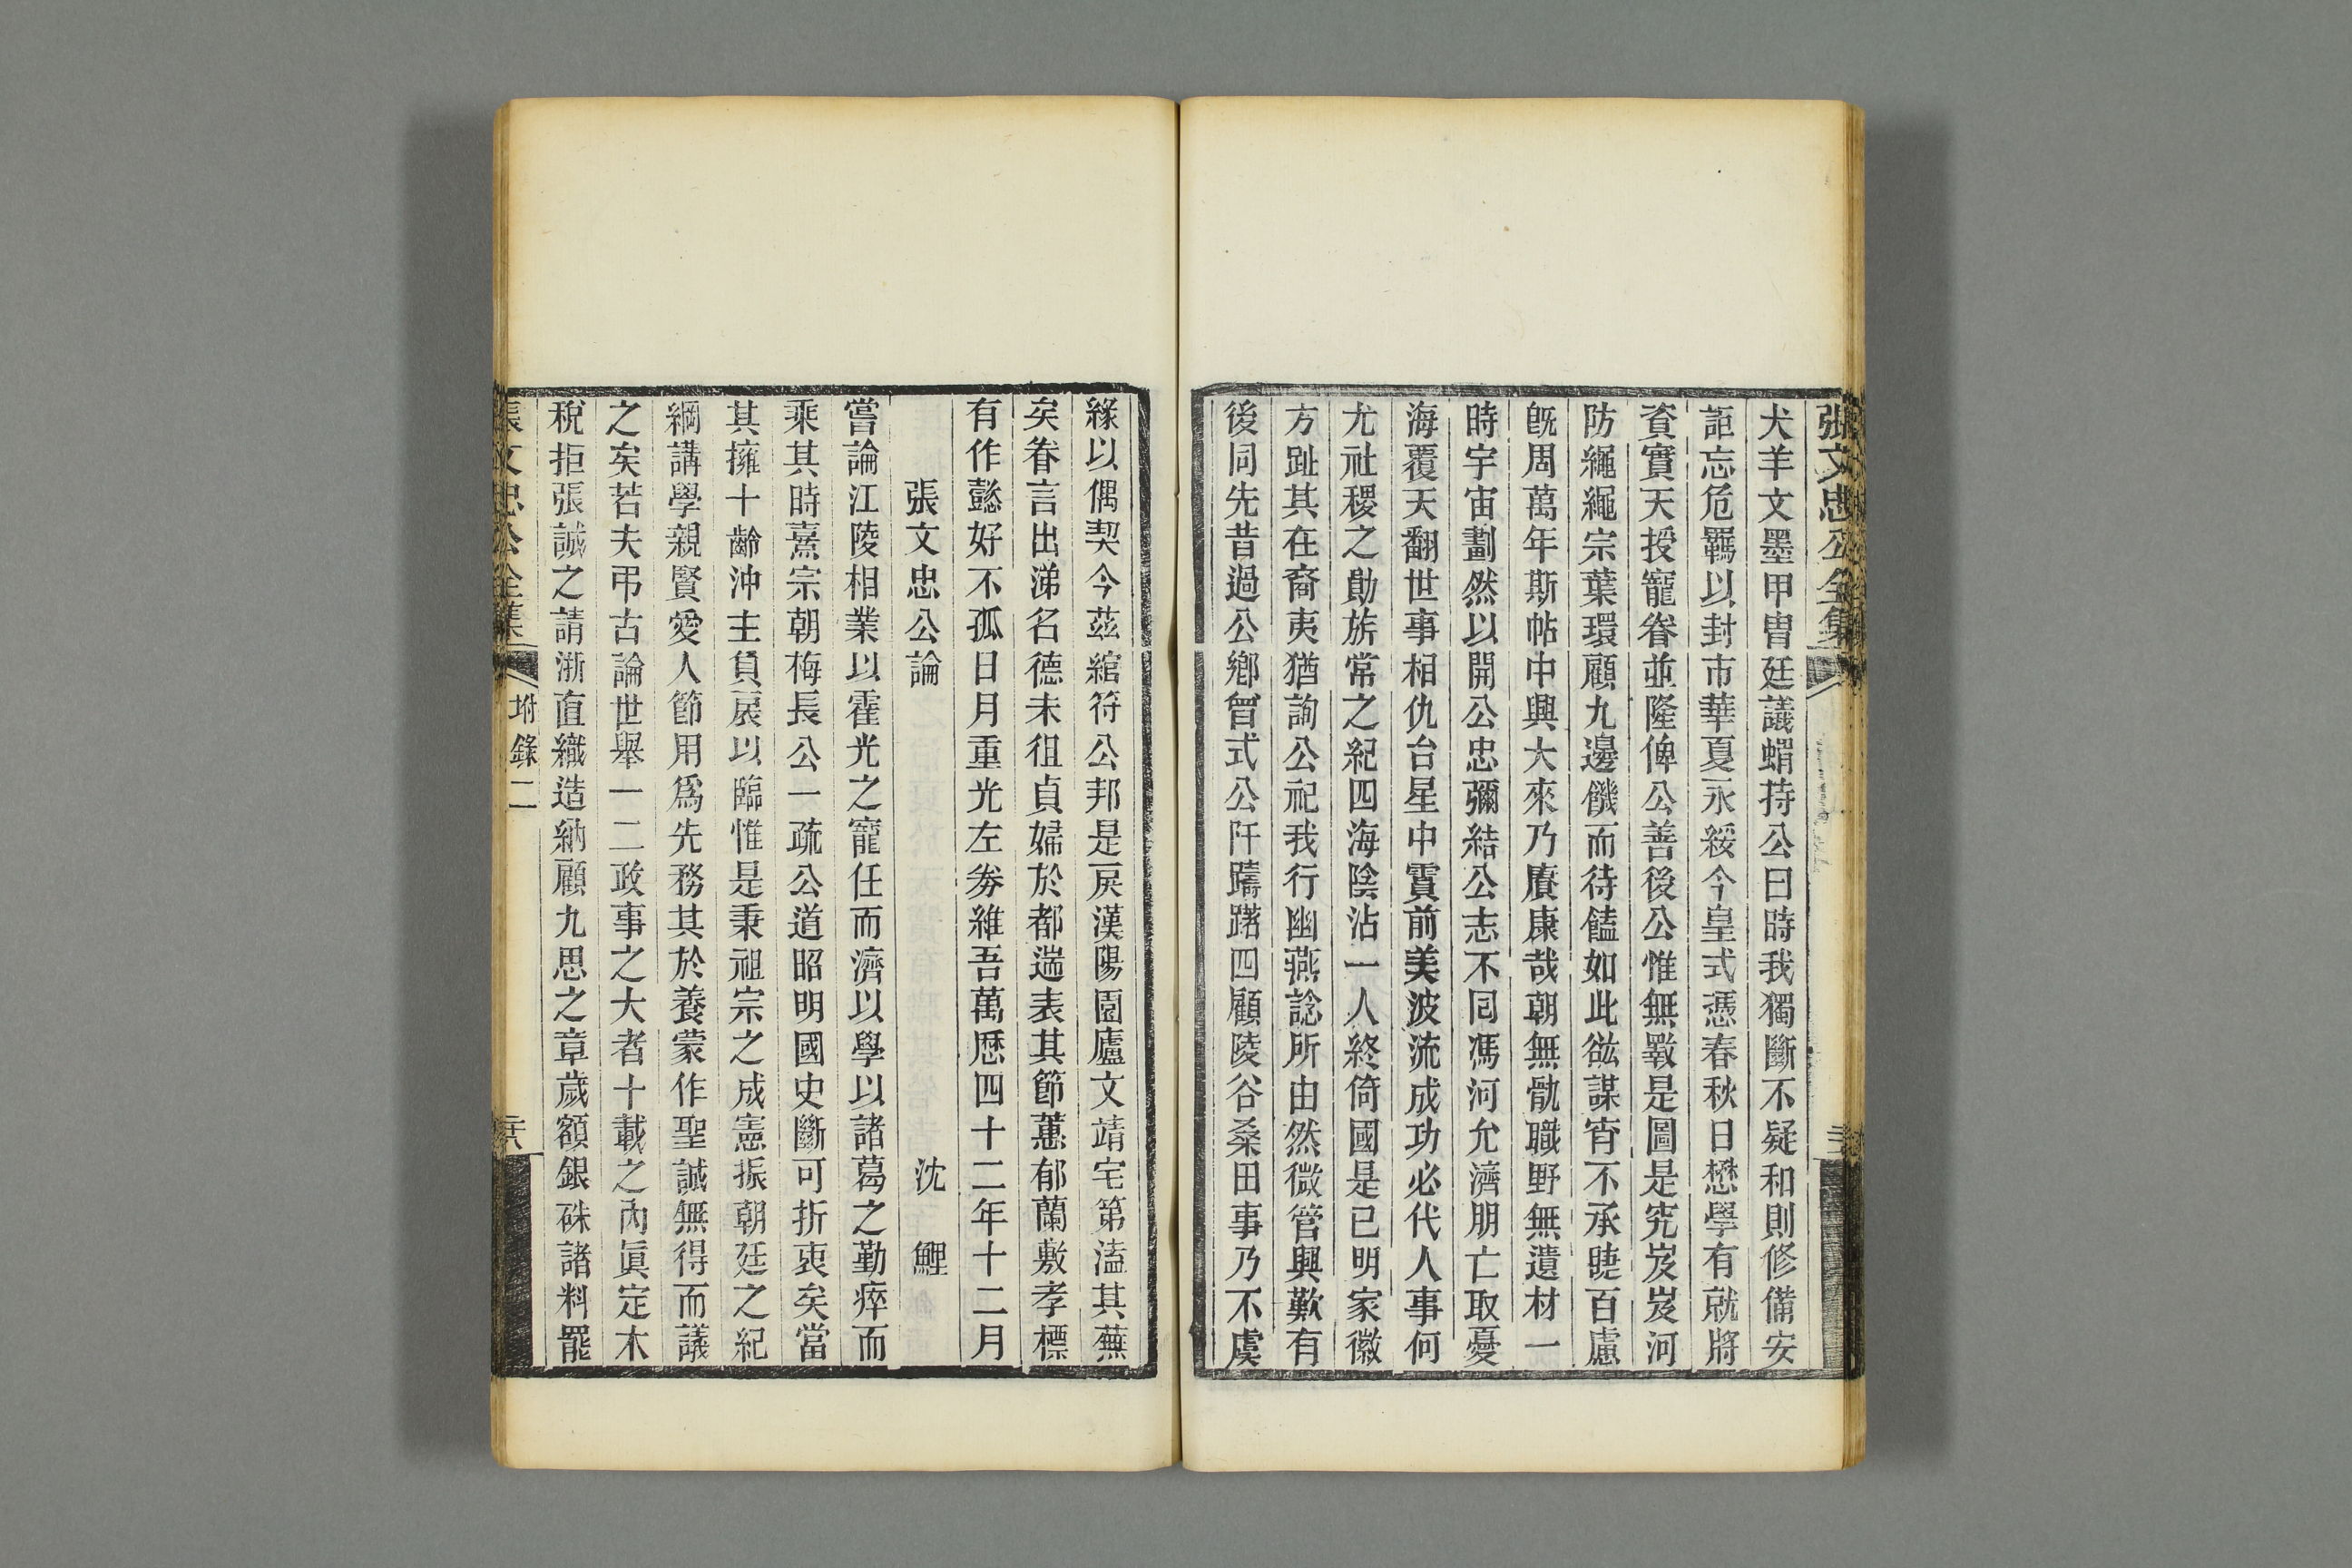 張文忠公全集
犬羊文墨甲冑廷議蝟持公曰時我獨斷不疑和則修備安
詎忘危羈以封市華夏永綏今皇式憑春秋日懋學有就將
資實天授寵眷並隆俾公善後公惟無斁是圖是究岌岌河
防繩繩宗葉環顧九邊饑而待饁如此竑謀宵不承睫百慮
旣周萬年斯帖中興大來乃賡康哉朝無骩職野無遺材一
時宇宙劃然以開公忠彌結公志不同馮河允濟朋亡取憂
海覆天翻世事相仇台星中霣前美波流成功必代人事何
尤社稷之勛旂常之紀四海陰沾一人終倚國是已明家徽
方趾其在裔夷猶詢公祀我行幽燕諗所由然微管興歎有
後同先昔過公鄉曾式公阡躊躇四顧陵谷桑田事乃不虞
緣以偶契今茲綰符公邦是戾漢陽園廬文靖宅第溘其蕪
矣眷言出涕名德未徂貞婦於都遄表其節蕙郁蘭敷孝標
有作懿好不孤日月重光左劵維吾萬厯四十二年十二月
張文忠公論
沈鯉
嘗論江陵相業以霍光之寵任而濟以學以諸葛之勤瘁而
乘其時熹宗朝梅長公一疏公道昭明國史斷可折衷矣當
其擁十齡沖主負扆以臨惟是秉祖宗之成憲振朝廷之紀
綱講學親賢愛人節用爲先務其於養蒙作聖誠無得而議
之矣若夫弔古論世舉一二政事之大者十載之內眞定木
稅拒張誠之請浙直織造納顧九思之章歲額銀硃諸料罷
張文忠公全集
坿錄二